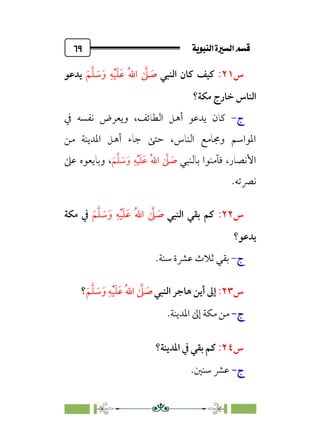 قسم السيرة النبوية
٦٩
س٢١: كيف كان النبي صَلَّى اللهُ عَلَيْهِ وَسَلَّمَ يدعو
الناس خارج مكة؟
ج- كان يدعو أهل الطائف، ويعرض نفسه في
المواسم ومجامع الناس، حتى جاء أهل المدينة من
الأنصار، فآمنوا بالنبي صَلَّى اللهُ عَلَيْهِ وَسَلَّمَ، وبايعوه على
نصرته.
س٢٢: كم بقي النبي صَلَّى اللهُ عَلَيْهِ وَسَلَّمَ في مكة
يدعو؟
ج- بقي ثلاث عشرة سنة.
س٢٣: إلى أين هاجر النبي صَلَّى اللهُ عَلَيْهِ وَسَلَّمَ؟
ج- من مكة إلى المدينة.
س٢٤: كم بقي في المدينة؟
ج- عشر سنين.